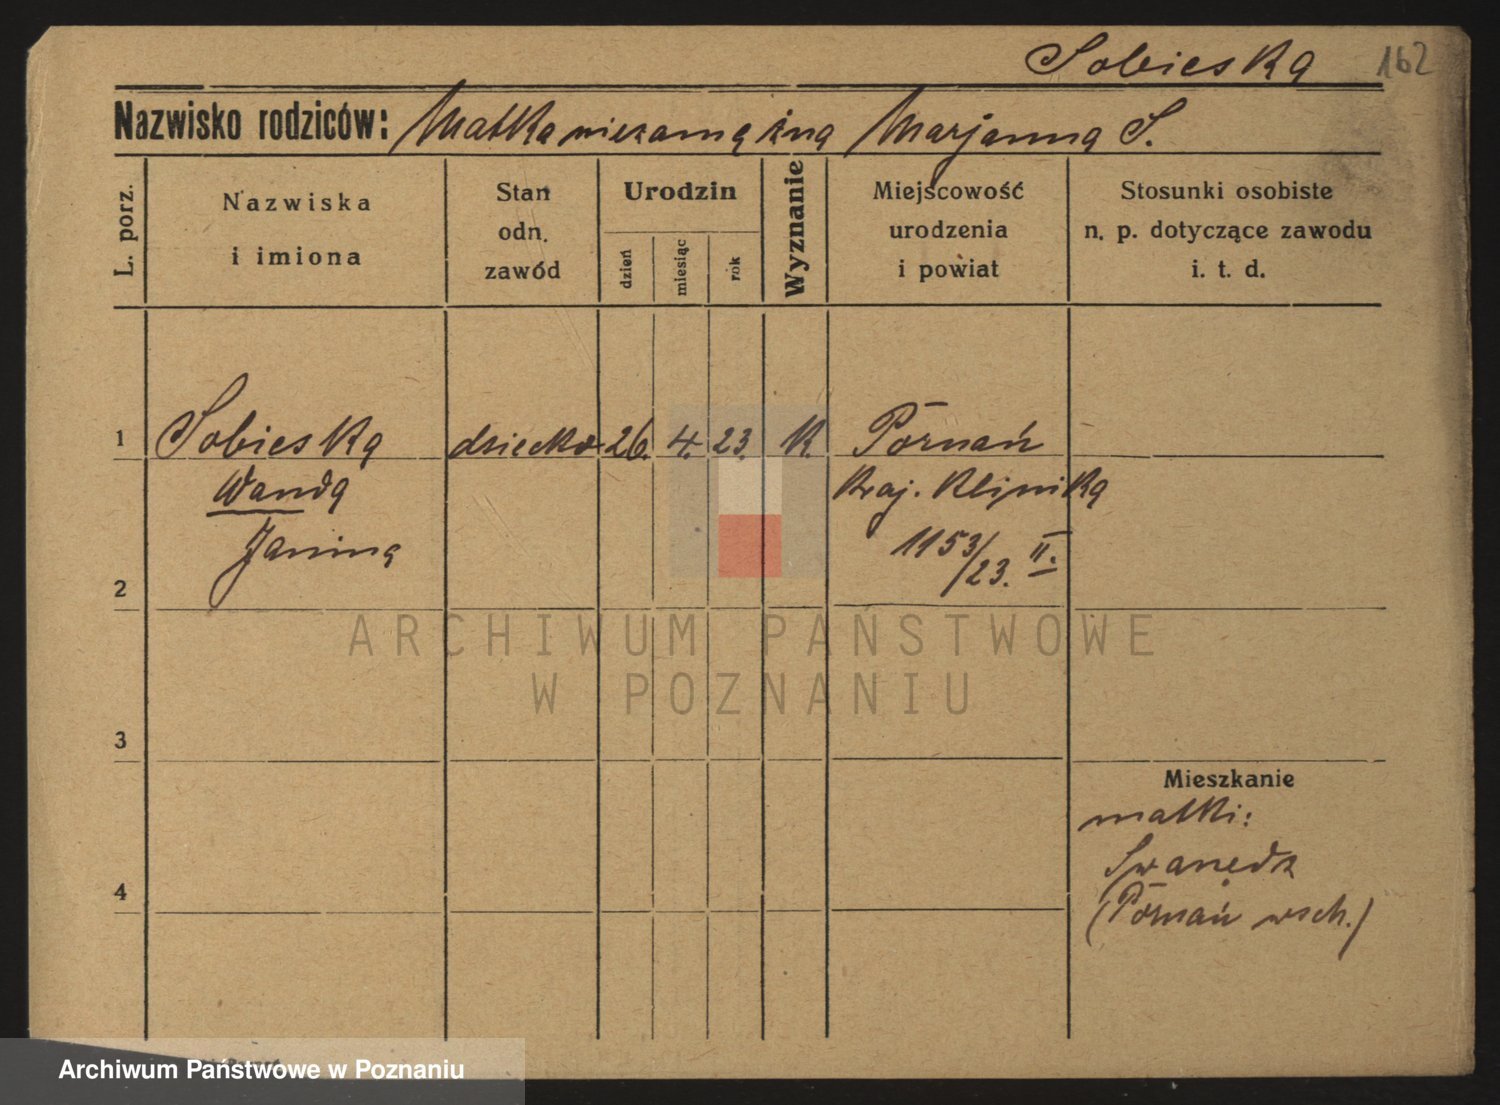 Sobieska 162
Nazwisko rodziców: Matka niezamężna Marjanna S.
L. porz.
Nazwiska
i imiona
Stan
odn.
zawód
Urodzin
dzień
miesiąc
rok
Wyznanie
Miejscowość
urodzenia
i powiat
Stosunki osobiste
n. p. dotyczące zawodu
i. t. d.
1 Sobieska dziecko 26. 4. 23. K. Poznań
Wanda Kraj. Klinika
Janina 1153/23. II.
2
ARCHIWUM PAŃSTWOWE
W POZNANIU
3
Mieszkanie
matki:
4
Swarzędz
(Poznań wsch.)
Archiwum Państwowe w Poznaniu